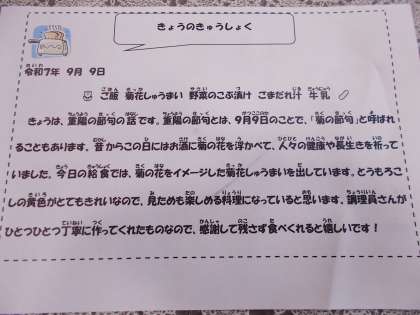 きょうのきゅうしょく
令和7年 9月 9日
ご飯 菊花しゅうまい 野菜のこぶ漬け ごまだれ汁 牛乳
きょうは、重陽の節句の話です。重陽の節句とは、9月9日のことで、「菊の節句」と呼ばれ
ることもあります。昔からこの日にはお酒に菊の花を浮かべて、人々の健康や長生きを祈って
いました。今日の給食では、菊の花をイメージした菊花しゅうまいを出しています。とうもろこ
しの黄色がとてもきれいなので、見ためも楽しめる料理になっていると思います。調理員さんが
ひとつひとつ丁寧に作ってくれたものなので、感謝して残さず食べくれると嬉しいです！